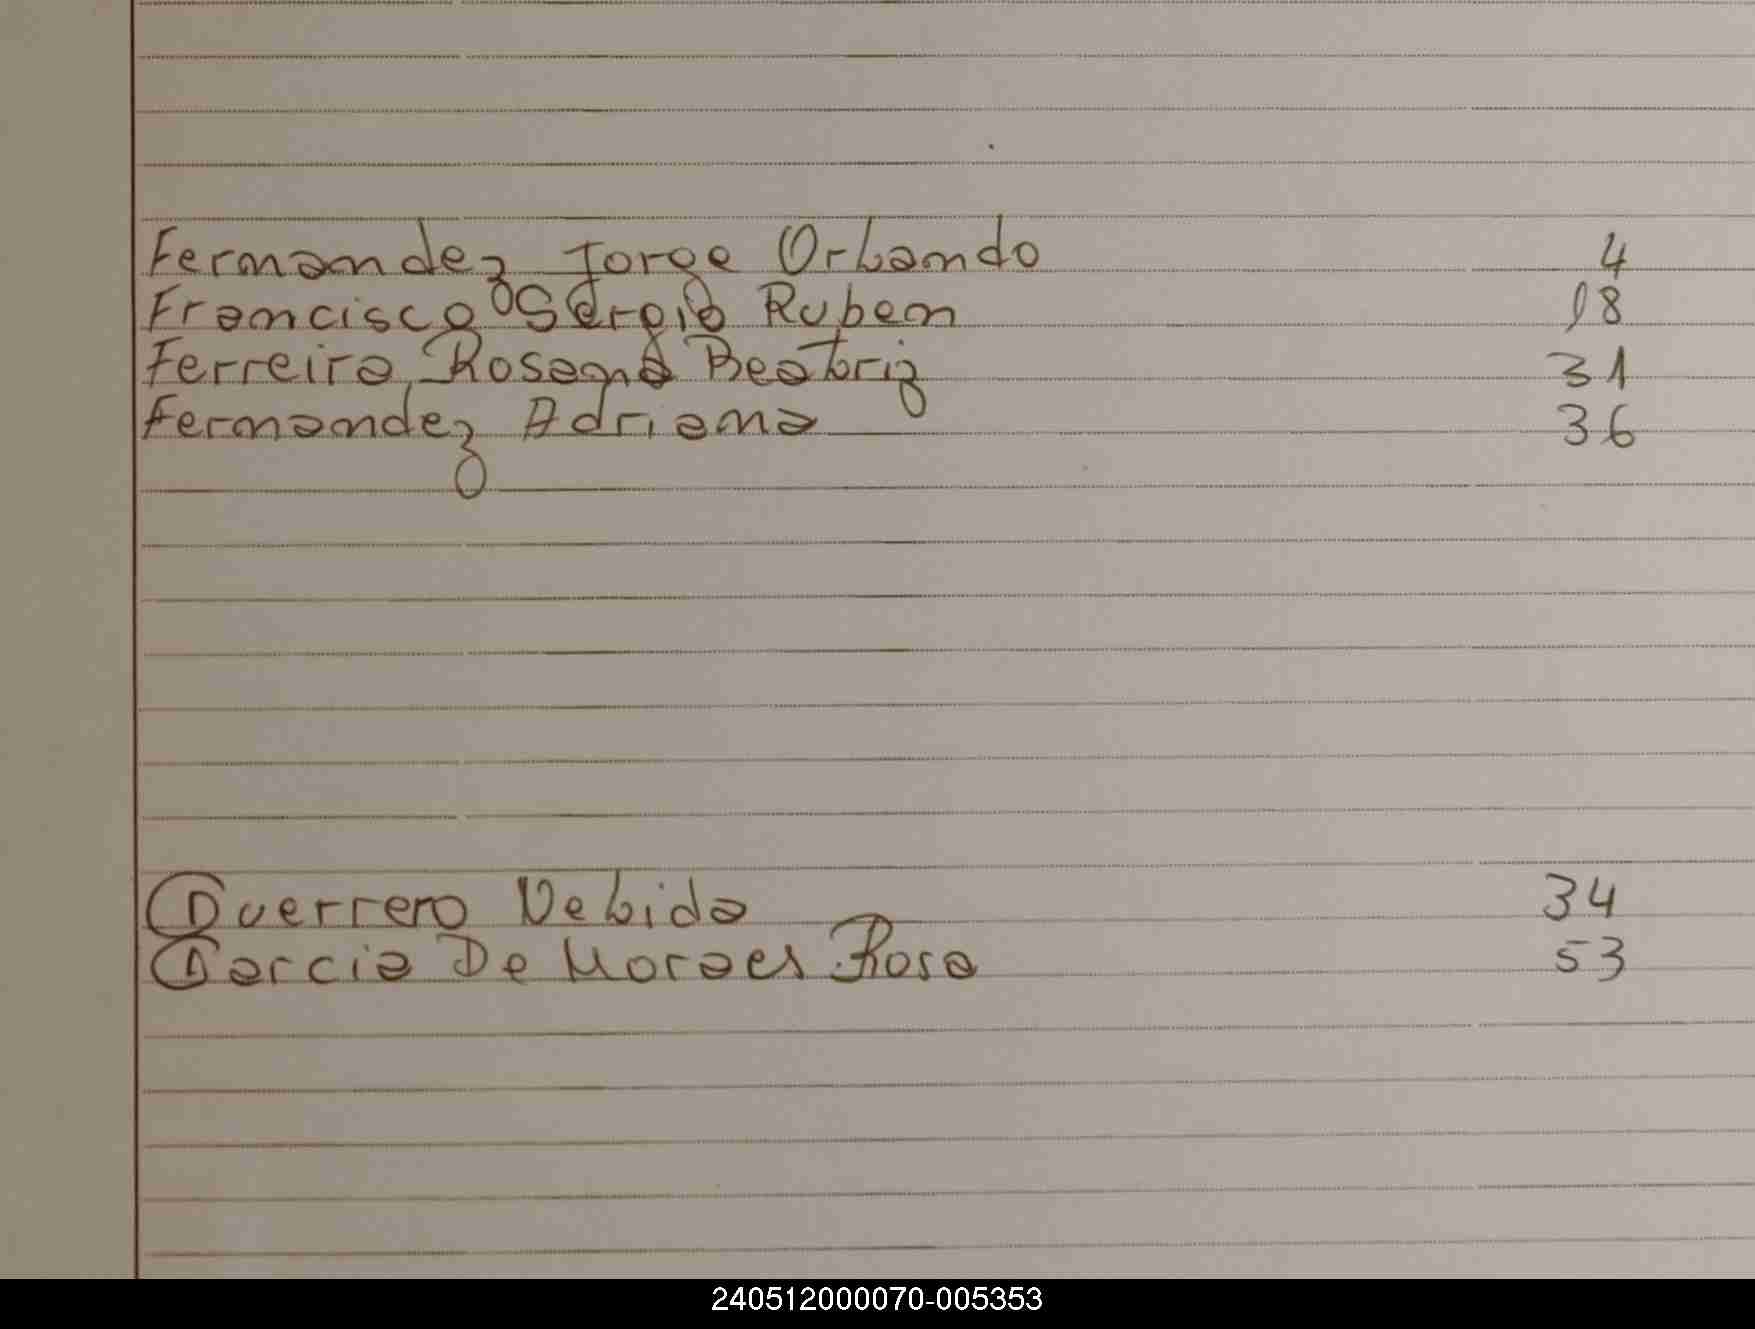 Fernandez Jorge Orlando 4
Francisco Sergio Ruben 18
Ferreira Rosana Beatriz 31
Fernandez Adriana 36
Guerrero Velida 34
Garcia De Moraes Rosa 53
240512000070-005353